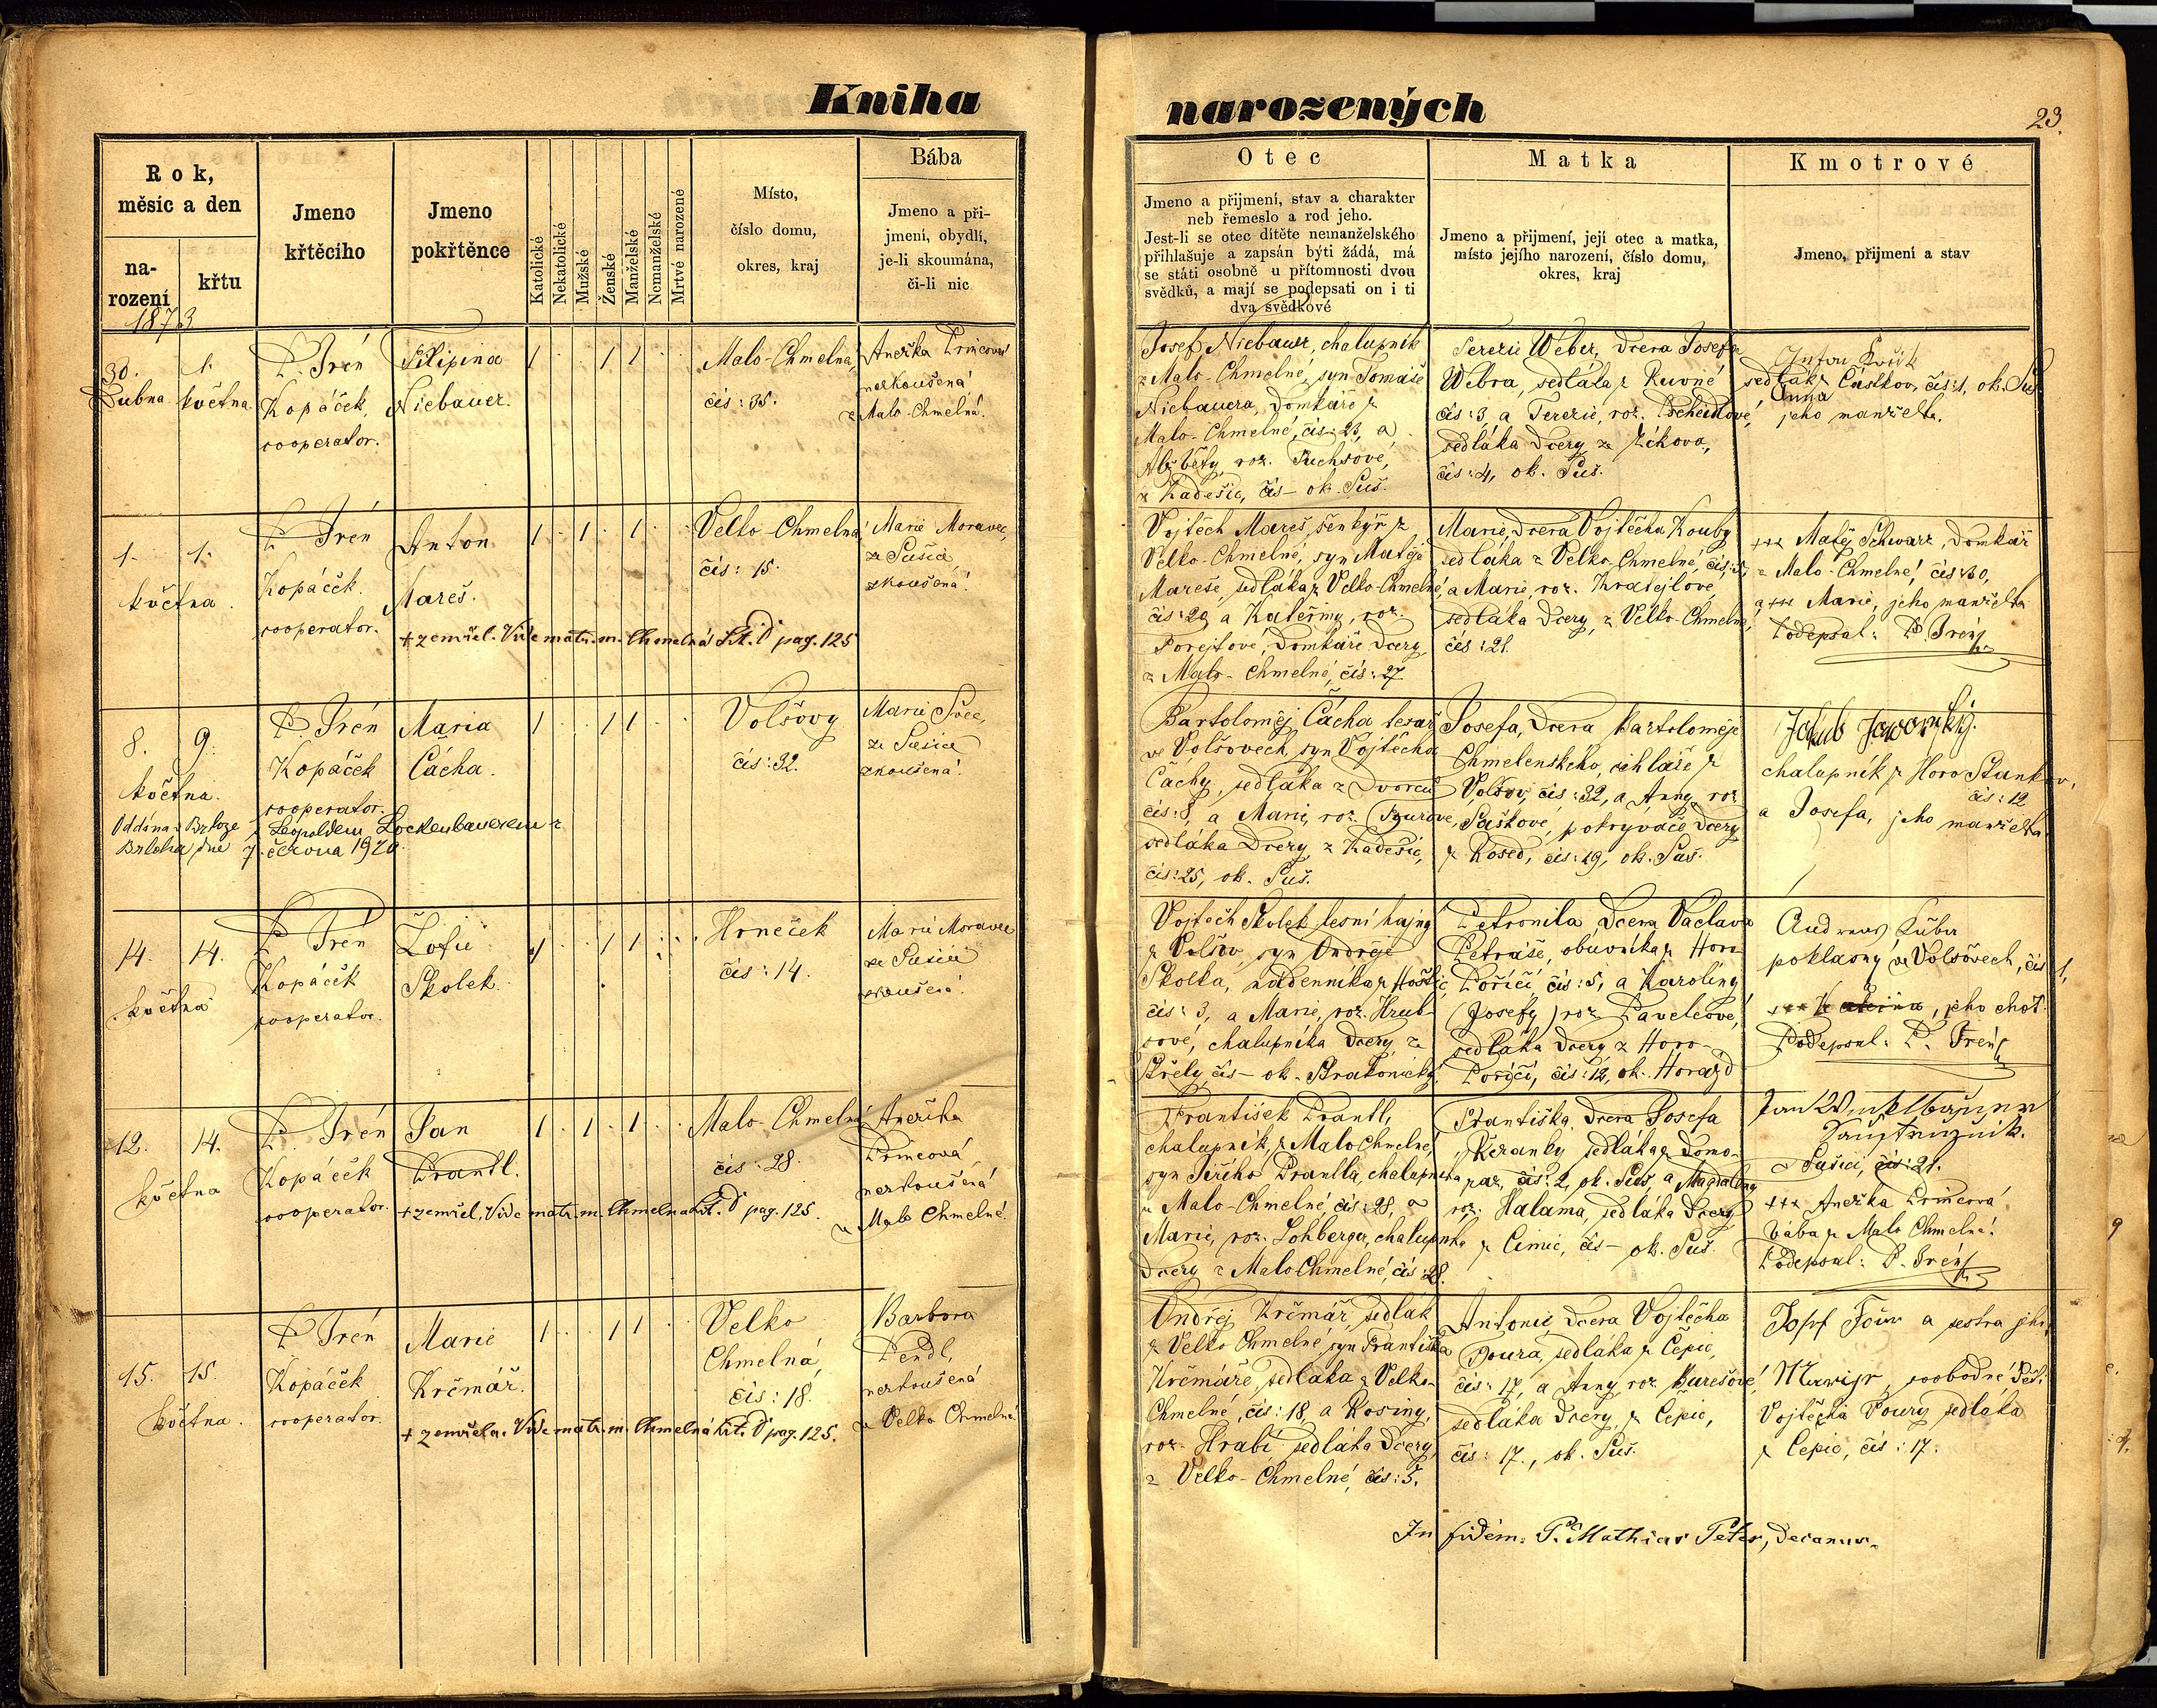 Kniha
narozených
23.
Rok,
měsíc a den
na-
rození
křtu
Jmeno
křtěcího
Jmeno
pokřtěnce
Katolické
Nekatolické
Mužské
Ženské
Manželské
Nemanželské
Mrtvé narozené
Místo,
číslo domu,
okres, kraj
Bába
Jmeno a při-
jmení, obydlí,
je-li skoumána,
či-li nic
Otec
Jmeno a přijmení, stav a charakter
neb řemeslo a rod jeho.
Jest-li se otec dítěte nemanželského
přihlašuje a zapsán býti žádá, má
se státi osobně u přítomnosti dvou
svědků, a mají se podepsati on i ti
dva svědkové
Matka
Jmeno a přijmení, její otec a matka,
místo jejího narození, číslo domu,
okres, kraj
Kmotrové
Jmeno, přijmení a stav
1873
30.
Dubna
1.
května
P. Irén
Kopáček,
cooperator.
Filipina
Niebauer.
1 1 1
Malo-Chmelná,
čís: 35.
Anežka Princová
nezkoušená
z Malo-Chmelná.
Josef Niebauer, chalupník
z Malo-Chmelné, syn Tomáše
Niebauera, Domkáře z
Malo-Chmelné, čís: 23, a
Alžběty, roz. Fuchsové,
z Kadešic, čís – ok. Suš.
Terezie Weber, dcera Josefa
Webra, sedláka z
čís: 3, a Terezie, roz.
sedláka dcery ze Žíkova,
čís: 4, ok. Suš.
sedlák z Částkov, čís: 1, ok. Suš
Anna
jeho manželka.
1. 1.
května.
P. Irén
Kopáček.
cooperator.
Anton
Mareš.
1 1 1
Velko-Chmelná
čís: 15.
Marie Moravec,
ze Sušice,
zkoušená.
+ zemřel. Vide matr. m. Chmelná Lit. D pag. 125
Vojtěch Mareš, šenkýř z
Velko-Chmelné, syn Matěje
Mareše, sedláka z Velko-Chmelné,
čís: 29, a Kateřiny, roz.
Porejtové, Domkáře dcery,
z Malo-Chmelné, čís: 27.
Marie, dcera Vojtěcha Kouby
sedláka z Velko-Chmelné, čís: 5,
a Marie, roz. Kratejlové,
sedláka dcery, z Velko-Chmelné,
čís: 21.
+++ Matěj Schwarz, Domkář
z Malo-Chmelné, čís: 30,
a +++ Marie, jeho manželka
Podepsal: P. Irén
8. 9.
května.
P. Irén
Kopáček
cooperator.
Maria
Čácha.
1 1 1
Volšovy
čís: 32.
Marie Švec,
ze Sušice
zkoušená.
Oddána v Brloze s Leopoldem Lockenbauerem z
Brloha dne 7. června 1920.
Bartoloměj Čácha tesař
ve Volšovech, syn Vojtěcha
Čáchy, sedláka z Dvorců
čís: 8, a Marie, roz. Pourové,
sedláka dcery z Kadešic,
čís: 25, ok. Suš.
Josefa, dcera Bartoloměje
Chmelenského, cihláře z
Volšov, čís: 32, a Anny, roz.
Paškové, pokrývače dcery
z Kosed, čís: 19, ok. Suš.
Jakub Jaworský.
chalupník z Horo Stankov,
čís: 12
a Josefa, jeho manželka.
14. 14.
května
P. Irén
Kopáček
cooperator.
Žofie
Skolek.
1 1 1
Hrneček
čís: 14.
Marie Moravec
ze Sušice
zkoušená.
Vojtěch Skolek, lesní hajný
z Volšov, syn Ondřeje
Skolka, nádenníka z Hoštic
čís: 3, a Marie, roz. Hrub-
cové, chalupníka dcery, ze
Střely čís – ok. Strakonický.
Petronila dcera Václava
Petráše, obuvníka z Horo-
Poříčí, čís: 5, a Karoliny
(Josefy) roz. Pavelcové,
sedláka dcery z Horo-
Poříčí, čís: 12, ok. Horažď
poklasný ve Volšovech, čís 1,
+++ Kateřina, jeho choť.
Podepsal: P. Irén
12. 14.
května
P. Irén
Kopáček
cooperator.
Jan
Prantl.
1 1 1
Malo-Chmelná
čís: 28.
Anežka
Princová
nezkoušená
z Malo Chmelné.
+ zemřel, Vide matr. m. Chmelná Lit. D pag. 125.
František Prantl,
chalupník, z Malo Chmelné,
syn Jiřího Prantla, chalupníka
z Malo-Chmelné, čís: 28, a
Marie, roz. Lohberger, chalupníka
dcery z Malo Chmelné, čís: 28.
Františka, dcera Josefa
Keranky sedláka z Domo-
raz, čís: 2, ok. Suš, a Magdaleny
roz. Halama, sedláka dcery
z Čimic, čís – ok. Suš.
v Sušici, čís: 21.
+++ Anežka Princová
bába z Malo Chmelná.
Podepsal: P. Irén
15. 15.
května.
P. Irén
Kopáček
cooperator.
Marie
Krčmář.
1 1 1
Velko
Chmelná,
čís: 18.
Barbora
Pendl,
nezkoušená
z Velko Chmelná
+ zemřela. Vide matr. m. Chmelná Lit. D pag. 125.
Ondřej Krčmář, sedlák
z Velko Chmelné, syn Františka
Krčmáře, sedláka z Velko-
Chmelné, čís: 18, a Rosiny,
roz. Hrabí sedláka dcery,
z Velko-Chmelné, čís: 5.
Antonie, dcera Vojtěcha
Poura, sedláka z Čepic,
čís: 17, a Anny roz. Burešové,
sedláka dcery z Čepic,
čís: 17., ok. Suš.
a sestra jeho
svobodné děti
Vojtěcha Poury sedláka
z Čepic, čís: 17.
In fidem: P. Mathias Peter, Decanus.